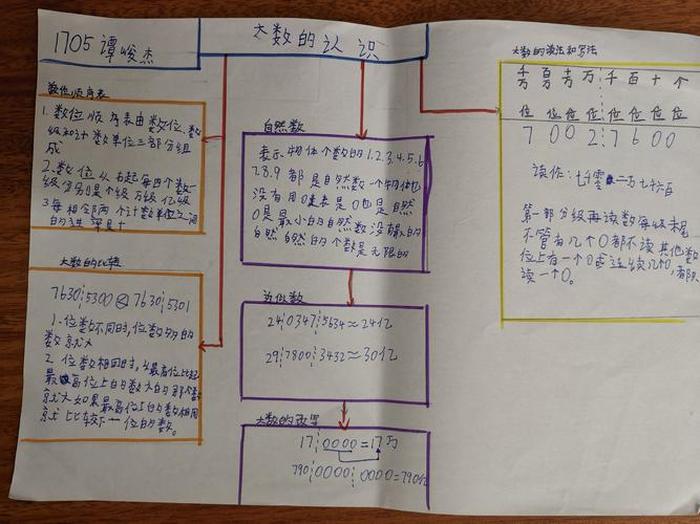 1705 谭峻杰
大数的认识
数位顺序表
1.数位顺序表由数位、数
级和计数单位三部分组
成
2.数位从右起每四个数一
级分别是个级万级亿级
3每相邻两个计数单位之间
的进率是十
大数的比较
7630┆5300<7630┆5301
1.位数不同时,位数多的
数就大
2.位数相同时,从最高位比起
最高位上的数大的那个数
就大如果最高位上的数相同
就比较下一位的数。
自然数
表示物体个数的1.2.3.4.5.6
7.8.9都是自然数一个物体也
没有用0来表示0也是自然
0是最小的自然数没有最大的
自然 自然的个数是无限的
近似数
24┆0347┆5634≈24亿
29┆7800┆3432≈30亿
大数的改写
17┆0000=17万
790┆0000┆0000=790亿
大数的读法和写法
千百十万┆千百十个
位位位位位位位位
7002┆7600
读作:七千零二万七千六百
第一部分级再读数每级末尾
不管有几个0都不读其他数
位上有一个0或连续几个0,都只
读一个0。